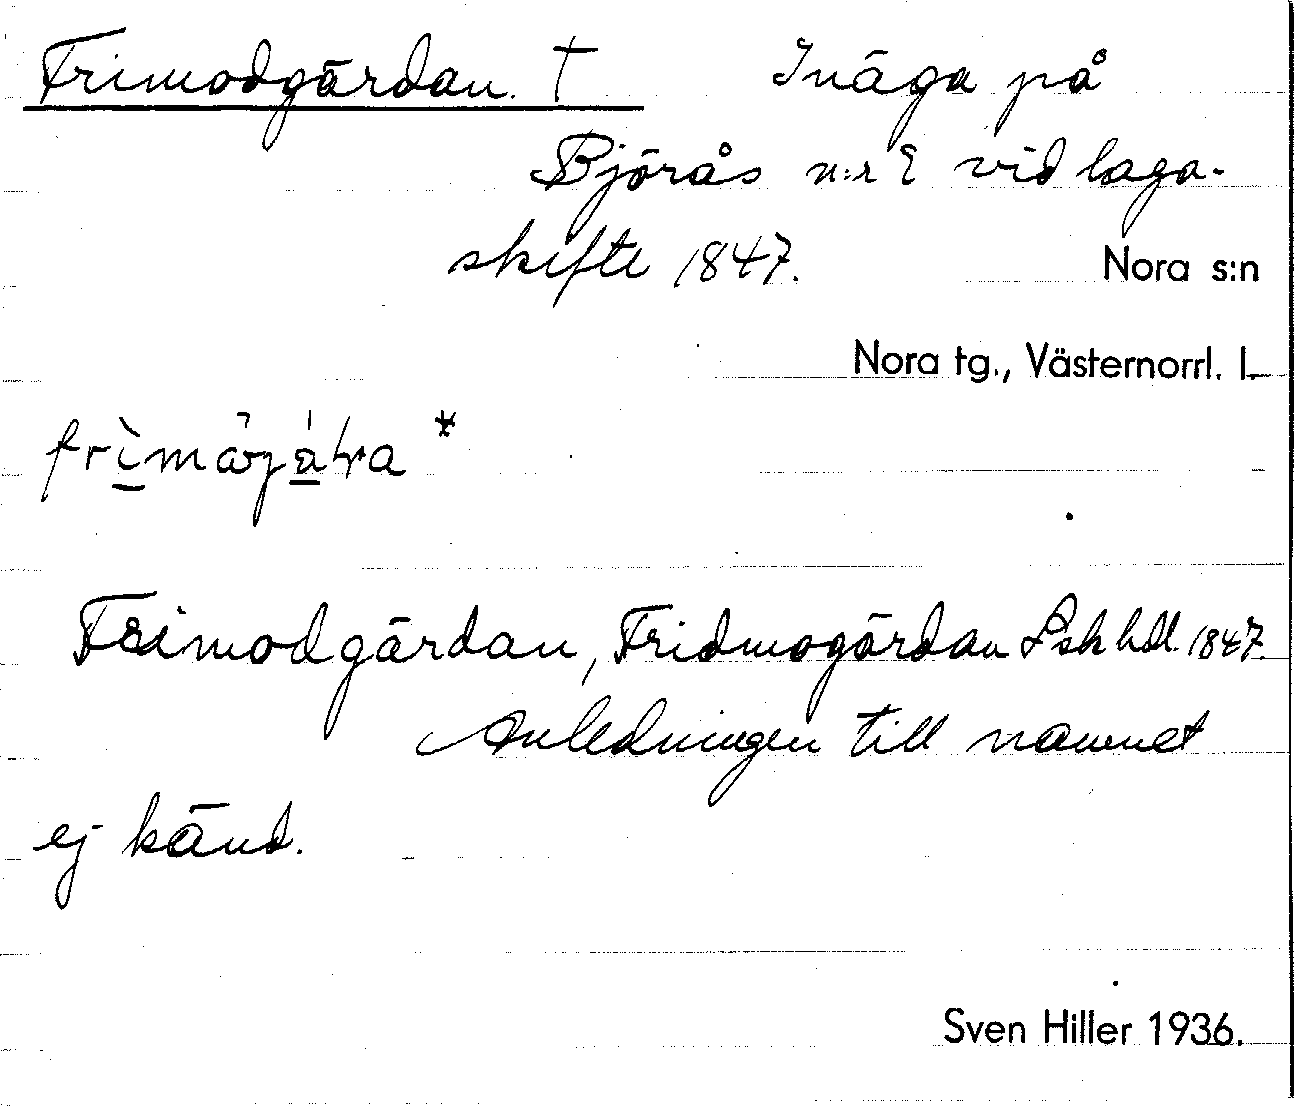 Frimodgärdan. † Inäga på
Björås n:r 2 vid laga-
skifte 1847. Nora s:n
Nora tg., Västernorrl. l.
Frimodgärdan, Fridmogärdan Lskhdl. 1847.
Anledningen till namnet
ej känd.
Sven Hiller 1936.